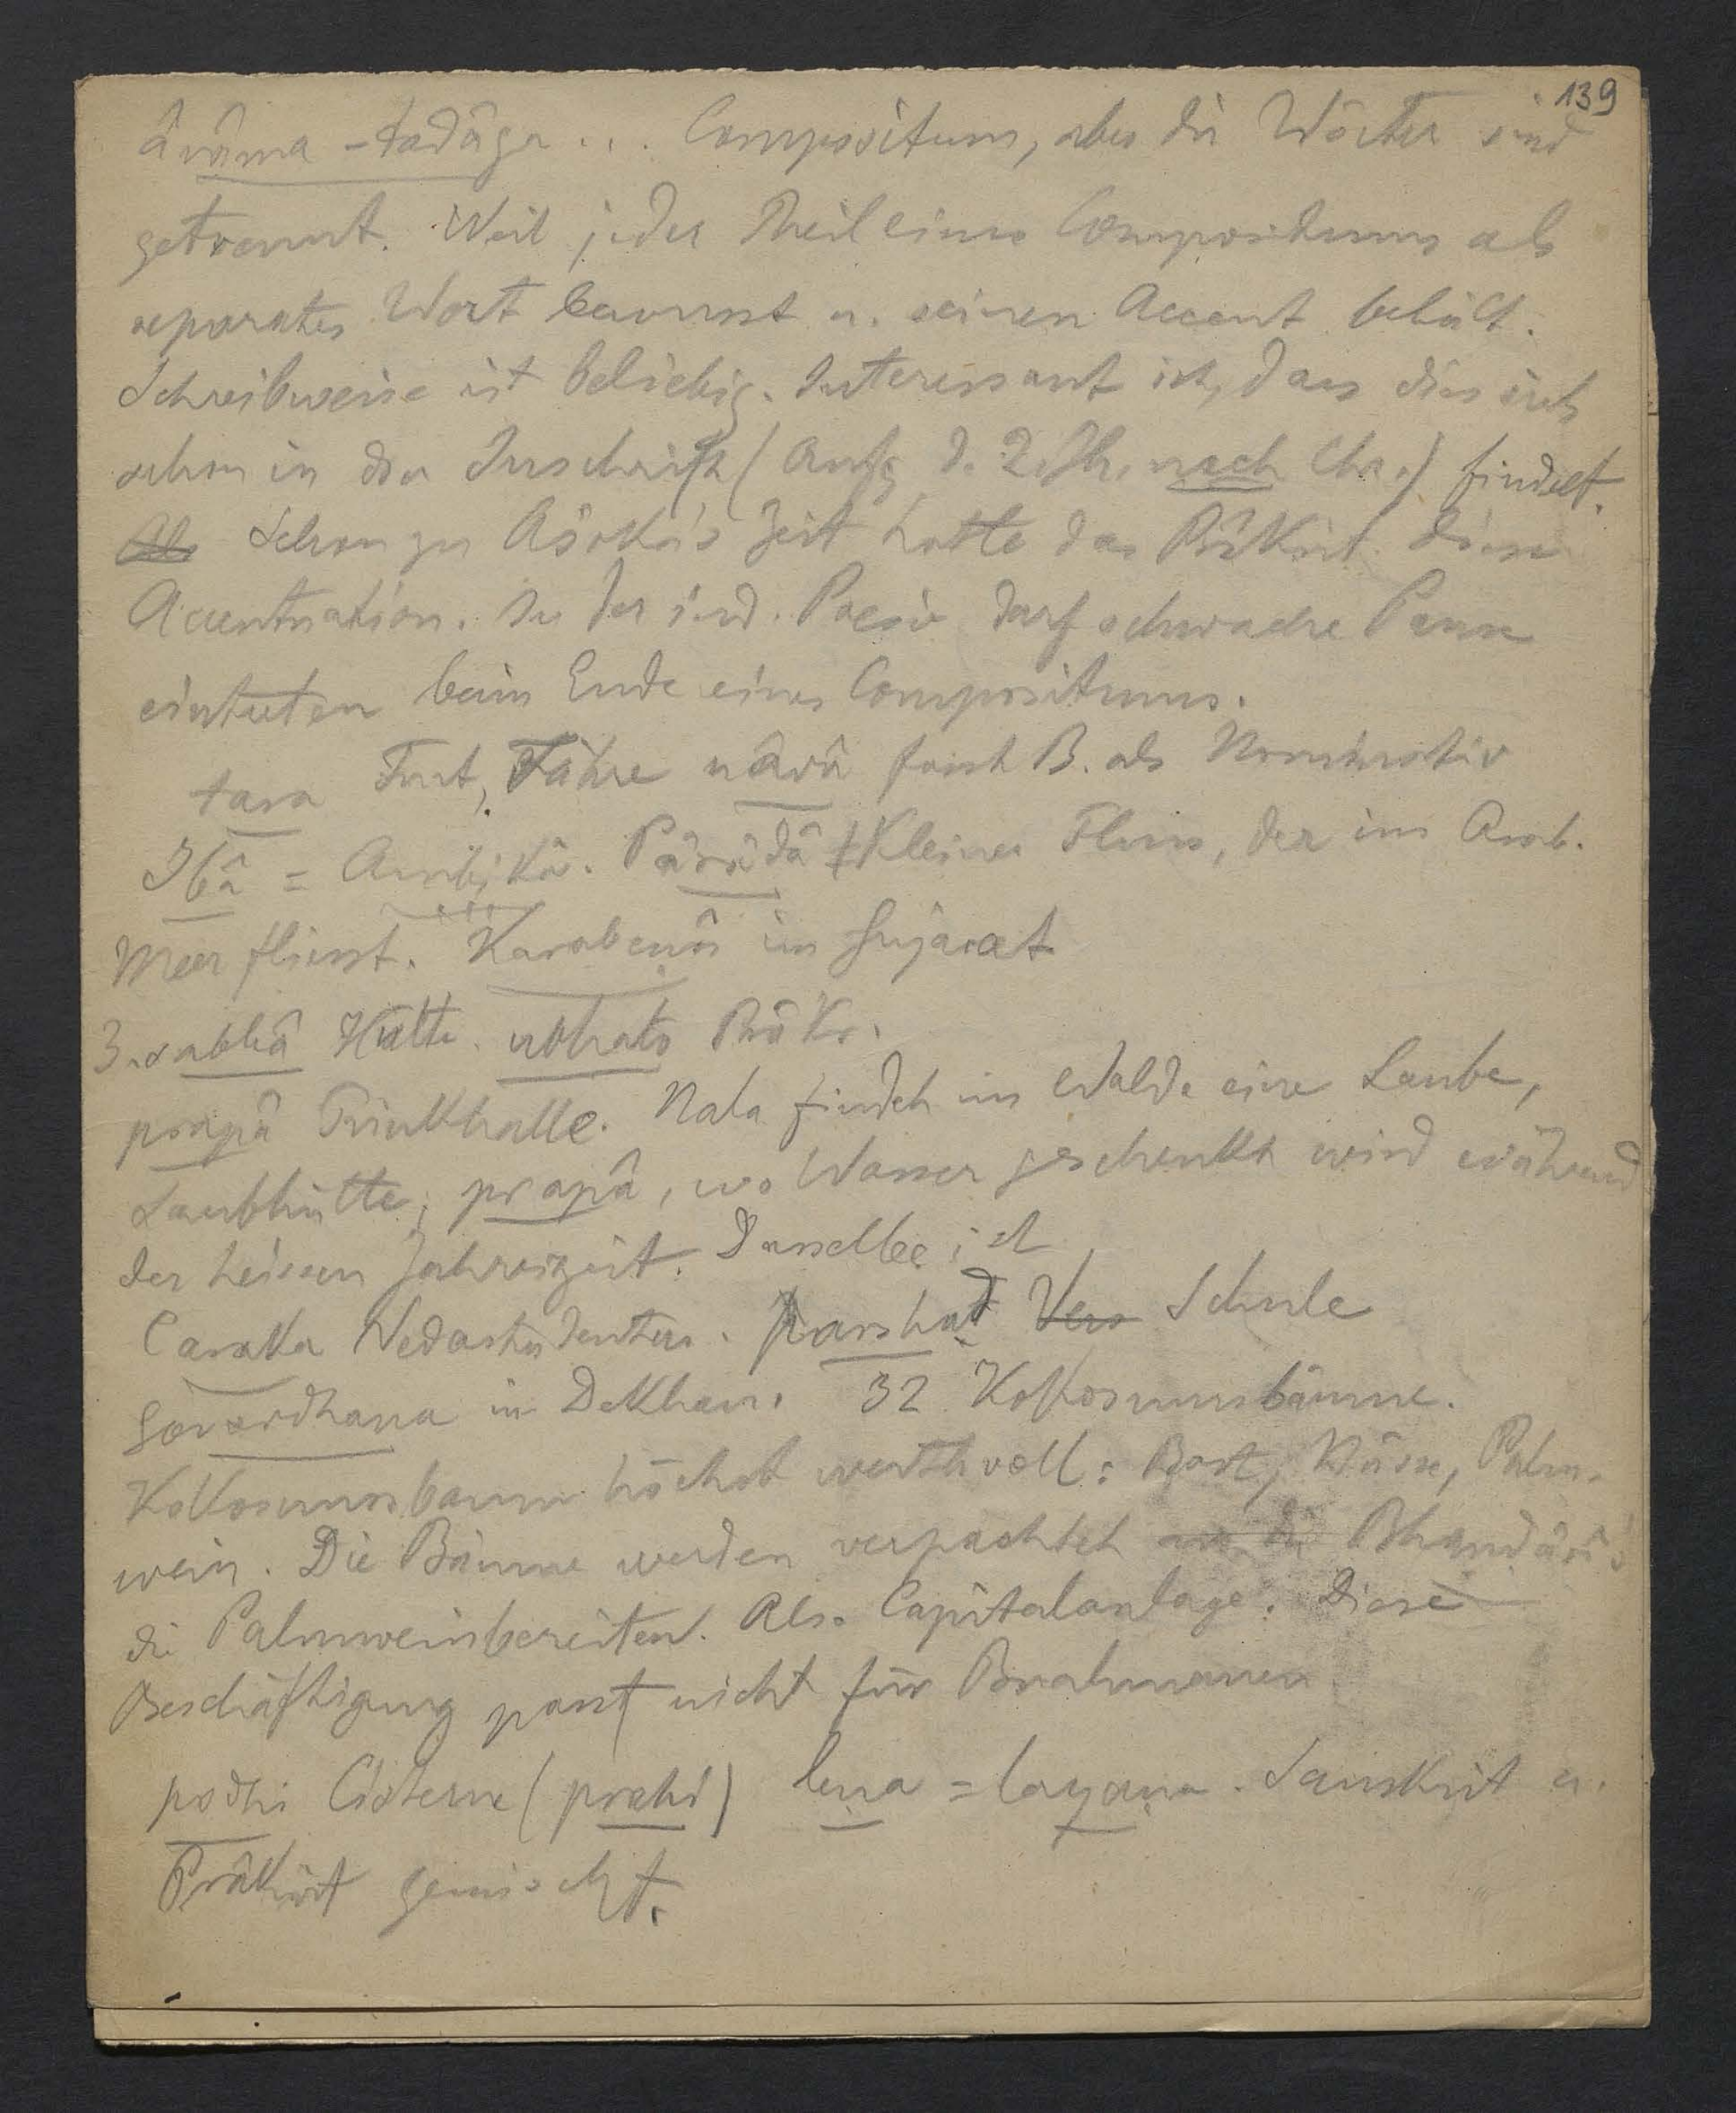 139
ârâma-tadâga ... Compositum, aber die Wörter sind
getrennt. Weil jeder Theil eines Compositums als
separates Wort bewusst u. seinen Accent behält.
Schreibweise ist beliebig. Interessant ist, dass dies sich
schon in der Inschrift (Anfg d. 2. Jh. nach Chr.) findet.
Als Schon zu Aśoka's Zeit hatte das Prâkrit diese
Accentuation. In der ind. Poesie darf schwache Pause
eintreten beim Ende eines Compositums.
tara Furt, Fähre nâvâ fasst B. als Nominativ
Ibâ = Ambikâ. Pârâdâ Kleiner Fluss, der ins Arab.
Meer fliesst. Karabenâ in Gujarat
3. sabhâ Hütte. ubhato Prâkr.
prapâ Trinkhalle. Nala findet im Walde eine Laube,
Laubhütte; prapâ, wo Wasser geschenkt wird während
der heissen Jahreszeit. Dasselbe ist
Caraka Vedastudenten. parshad Vers Schule
Govardhana in Dekhan. 32 Kokosnussbäume.
Kokosnussbaum höchst werthvoll: Bast, Nüsse, Palm-
wein. Die Bäume werden verpachtet an die Bhandârî's
die Palmwein bereiten. Als Capitalanlage. Diese
Beschäftigung passt nicht für Brahmanen
podhi Cisterne (prahi) lena = layana. Sanskrit u.
Prâkrit gemischt.